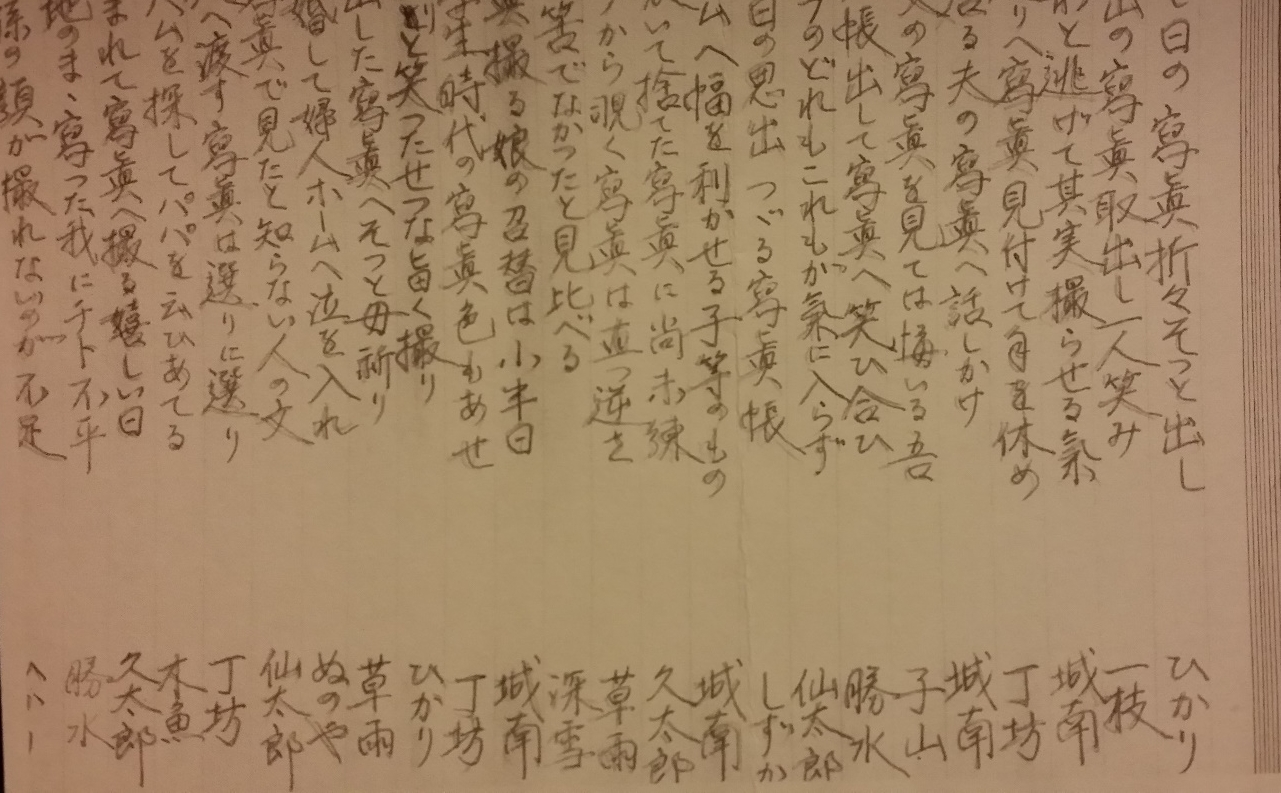 日の寫眞折々そつと出し ひかり
山の寫眞取出し一人笑み 一枝
と逃げて其実撮らせる氣 城南
りへ寫眞見付けて手を休め 丁坊
る夫の寫眞へ話しかけ 城南
の寫眞を見ては悔いる吾 子山
帳出して寫眞へ笑ひ合ひ 勝水
つのどれもこれもが氣に入らず 仙太郎
日の思出つゞる寫眞帳 しずか
ムへ幅を利かせる子等のもの 城南
いて捨てた寫眞に尚未練 久太郎
から覗く寫眞は直つ逆さ 草雨
筈でなかつたと見比べる 深雪
撮る娘の召替は小半日 城南
学生時代の寫眞色もあせ 丁坊
と笑つたせつな旨く撮り ひかり
出した寫眞へそつと母祈り 草雨
婚して婦人ホームへ泣を入れ ぬのや
寫眞で見たと知らない人の文 仙太郎
へ渡す寫眞は選りに選り 丁坊
ハムを探してパパを云ひあてる 木魚
まれて寫眞へ撮る嬉しい日 久太郎
地のまゝ寫つた我にチト不平 勝水
孫の顔が撮れないのが不足